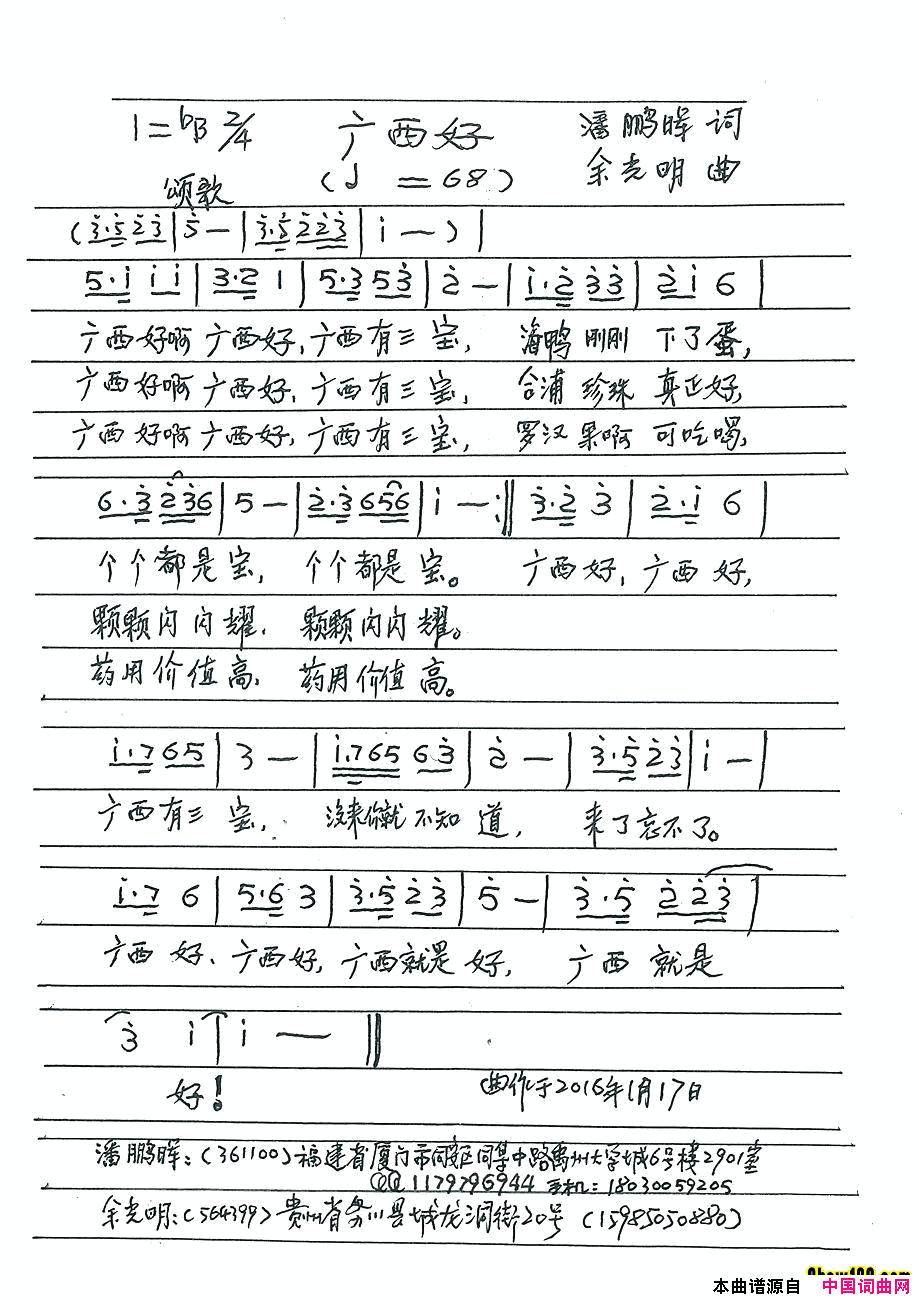 1=♭B 2/4 广西好 潘鹏晖 词
颂歌 (♩ =68) 余光明 曲
(3̇·5̇ 2̇3̇|5̇ —|3̇·5̇ 2̇2̇3̇|1̇ — )|
5·1̇ 1̇ 1̇|3·2 1|5·3 5 3̇|2̇ —|1̇·2̇ 3̇3̇|2̇ 1̇ 6|
广西好啊 广西好,广西有三宝, 潘鸭 刚刚 下了蛋,
广西好啊 广西好,广西有三宝, 合浦 珍珠 真正好,
广西好啊 广西好,广西有三宝, 罗汉 果啊 可吃喝,
6·3̇ 2̇3̇6|5 —|2̇·3̇ 656|1̇ —:‖ 3̇·2̇ 3̇|2̇·1̇ 6|
个个都是宝, 个个都是宝。 广西好,广西好,
颗颗闪闪耀, 颗颗闪闪耀。
药用价值高, 药用价值高。
1̇·7 65|3 —|1̇·765 6 3̇|2̇ —|3̇·5̇ 2̇3̇|1̇ —|
广西有三宝, 没来你就不知道, 来了忘不了。
1̇·7 6|5·6 3|3̇·5̇ 2̇3̇|5̇ —|3̇·5̇ 2̇ 2̇3̇|
广西好、广西好,广西就是好, 广西 就是
3̇ 1̇|1̇ — ‖
好! 曲作于2016年1月17日
潘鹏晖:(361100)福建省厦门市同安区同集中路禹州大学城6号楼2901室
QQ 1179796944 手机:18030059205
余光明:(564399)贵州省务川县城龙洞街20号 (15985050880)
本曲谱源自 中国词曲网